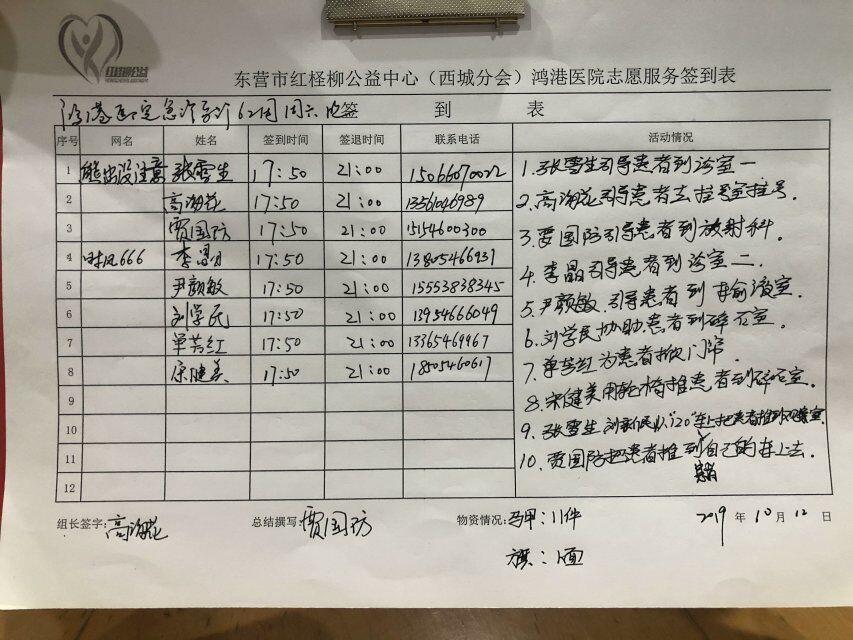 红柽柳公益
东营市红柽柳公益中心（西城分会）鸿港医院志愿服务签到表
鸿港医院急诊导诊62周周六晚签 到 表
序号 网名 姓名 签到时间 签退时间 联系电话 活动情况
1 熊出没注意 张雪生 17:50 21:00 15066070022
2 高海花 17:50 21:00 13361046989
3 贾国防 17:50 21:00 15154600300
4 时风666 李晶 17:50 21:00 13805466931
5 尹颜敏 17:50 21:00 15553838345
6 刘学民 17:50 21:00 13954666049
7 单芸红 17:50 21:00 13365469967
8 宋健美 17:50 21:00 18505460617
9
10
11
12
1、张雪生引导患者到诊室一
2、高海花引导患者去挂号室挂号。
3、贾国防引导患者到放射科。
4、李晶引导患者到诊室二。
5、尹颜敏引导患者到输液室。
6、刘学民协助患者到碎石室。
7、单芸红为患者掀门帘。
8、宋健美用轮椅推患者到碎石室。
9、张雪生 刘学民从"120"车上把患者推到
10、贾国防把患者推到患者自己的车上去。
组长签字：高海花 总结撰写：贾国防 物资情况：马甲：11件 2019 年 10 月 12 日
旗：1面